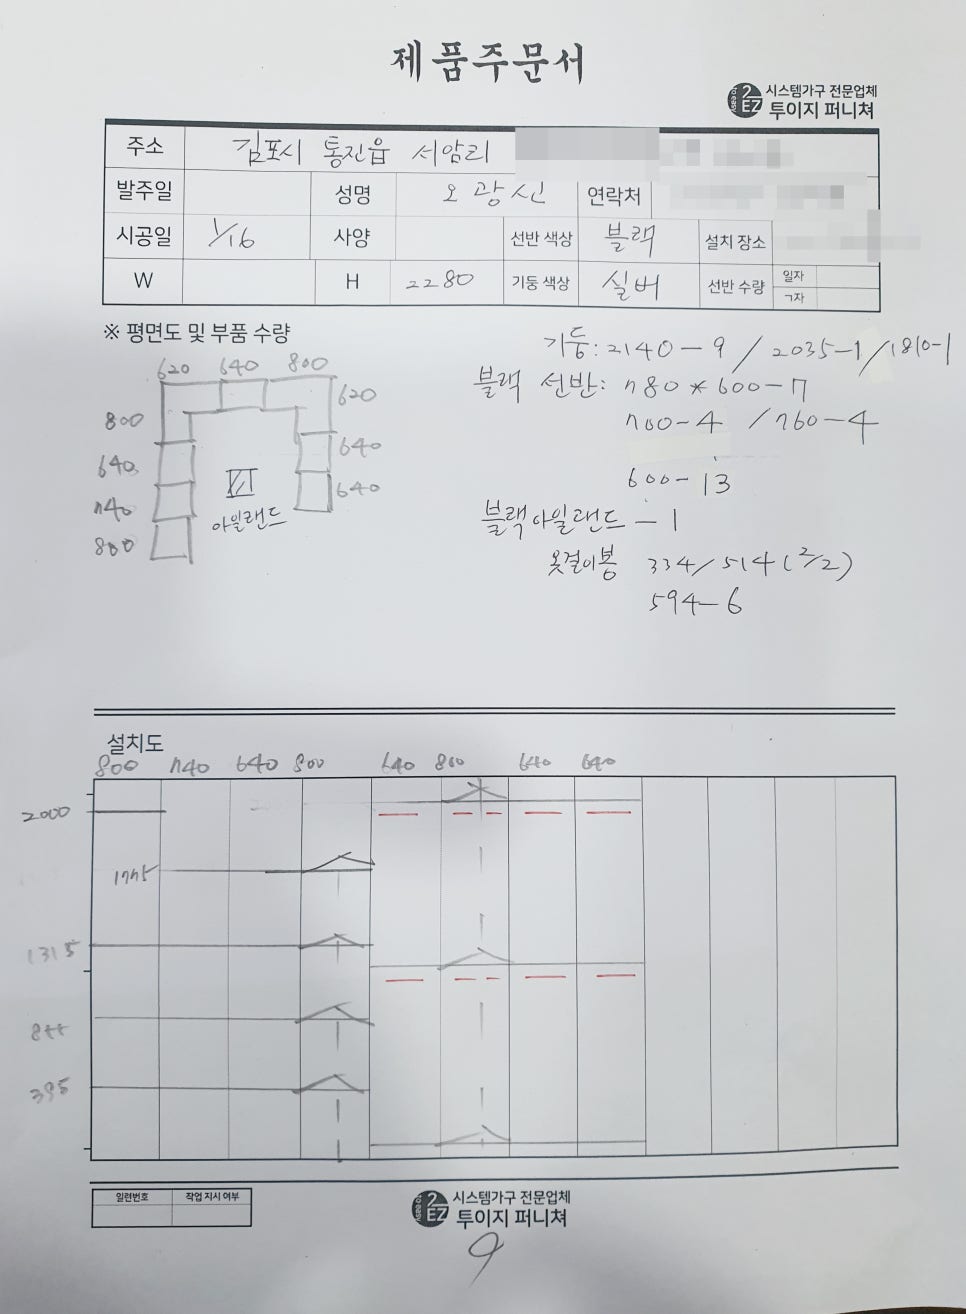 제품주문서
시스템가구 전문업체
2EZ 투이지 퍼니쳐
주소 김포시 통진읍 서암리
발주일 성명 오광신 연락처
시공일 1/16 사양 선반 색상 블랙 설치 장소
W H 2280 기둥 색상 실버 선반 수량 일자
ㄱ자
※ 평면도 및 부품 수량
기둥: 2140-9 / 2035-1 / 1810-1
620 640 800
블랙 선반: 780*600-7
800 620
700-4 / 760-4
640 640
600-13
740 640
아일랜드
블랙아일랜드-1
800
옷걸이봉 334/514(2/2)
594-6
설치도
800 740 640 800 640 800 640 640
2000
1775
1315
844
395
일련번호 작업 지시 여부
시스템가구 전문업체
2EZ 투이지 퍼니쳐
9